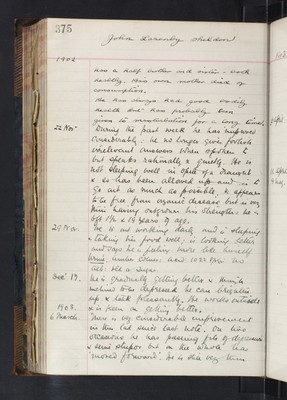 375
John Lazenby Sheldon
1902
has a half brother and sister - both
healthy. His own mother died of
consumption.
He has always had good bodily
health but has probably been
given to masturbation for a long time.
22 Nov
During the past week he has improved
considerably; he no longer gives foolish
irrelevant answers when spoken to
but speaks rationally & quietly. He is
not sleeping well in spite of a draught
& so has been allowed up and is to
go out as much as possible. He appears
to be free from organic disease but is very
thin having outgrown his strength: he is
6ft 1½ & 19 years of age.
29 Nov.
He is now working daily and is sleeping
& taking his food well; is looking better
and says he is feeling more like himself
Urine: amber colour, acid 1023
Alb. Nil. no sugar.
Dec 17.
He is gradually getting better &
inclined to be depressed he can brighten
up & talk pleasantly. He works outside
& is keen on getting better.
1903.
6 March
There is very considerable improvement
in this lad since last note. On
occasions he has passing fits of depression
& semi stupor but on the whole has
moved forward. He is still very thin